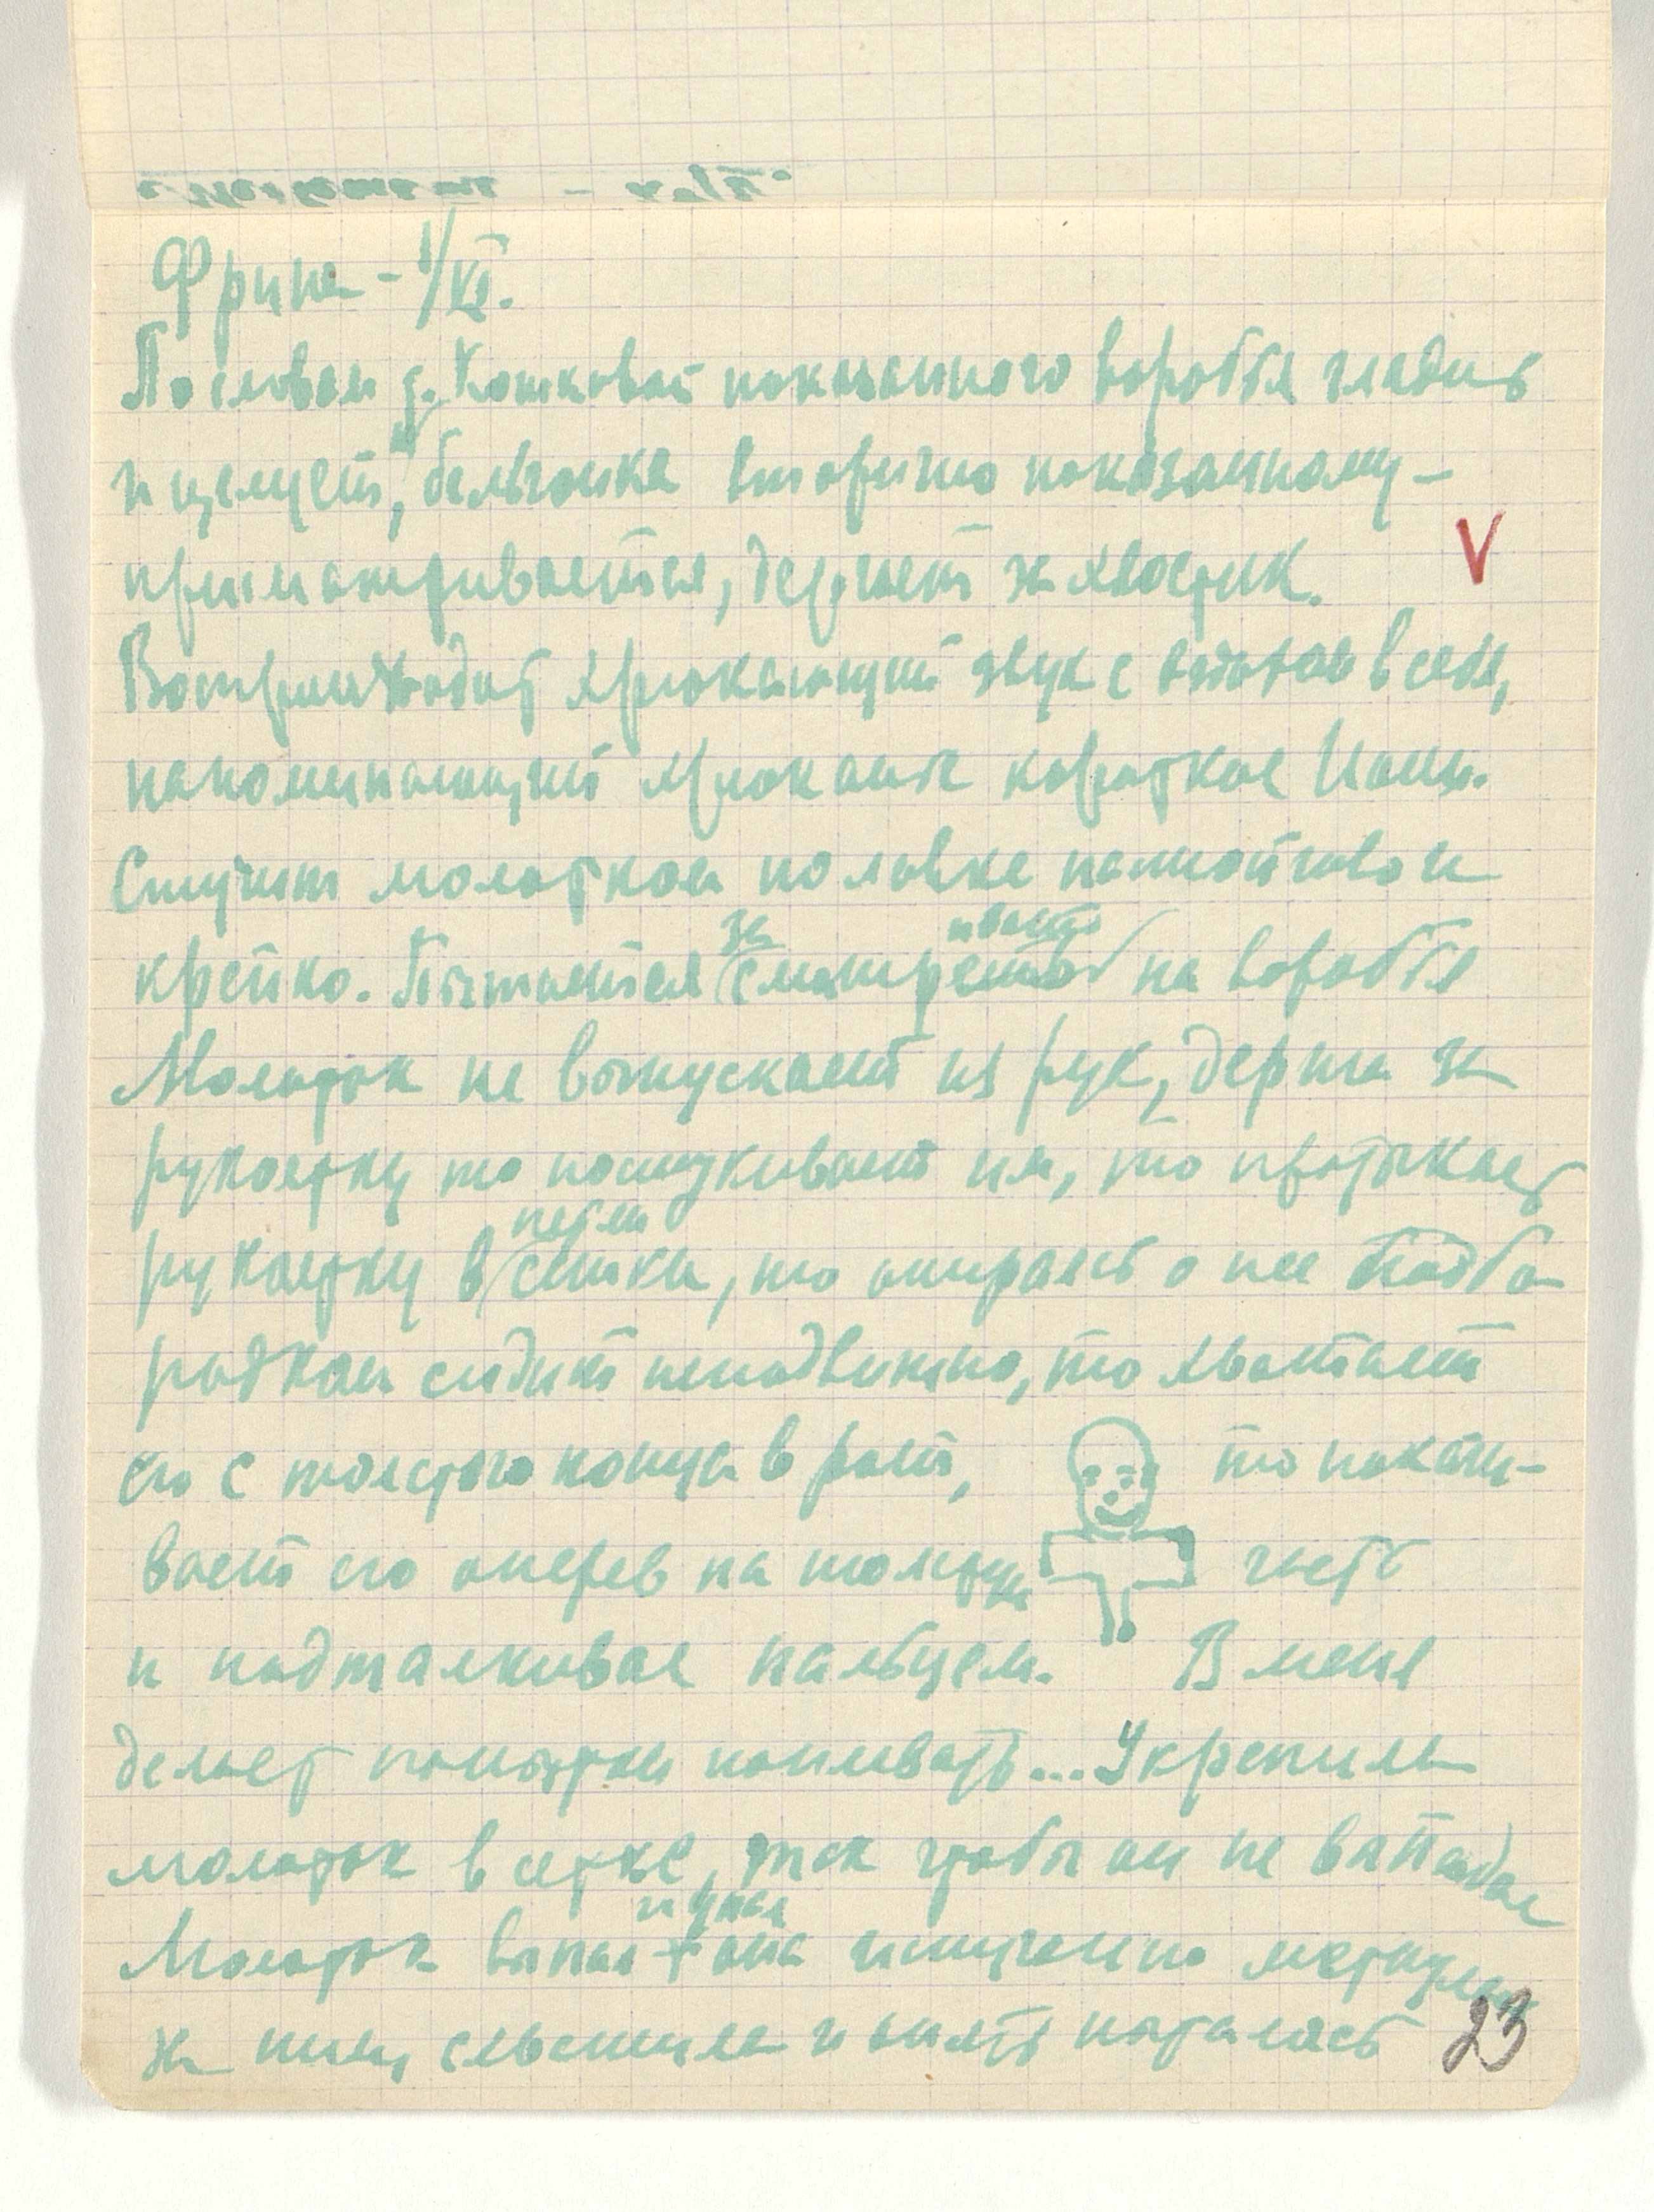 Фрина – 1/VI.
По словам д. Котковой показанного воробья гладит
и целует, бельчонка вторично показанному –
присматривается, дергает за хвостик.
хрюкающий звук с в себя,
напоминающий хрюканье короткое Иони.
Стучит молотком по лавке настойчиво и
крепко. Пытается за смотреть на воробья
Молоток не выпускает из рук, держа за
рукоятку то постукивает им, то протыкает
рукоятку в петли сетки, то опираясь о нее подбо
родком сидит неподвижно, то хватает
его с толстого конца в рот, то покачи-
вает его оперев на толстую часть
и подталкивая пальцем. В меня
делает попытки поплевать... Укрепила
молоток в сетке, так чтобы он не выпадал
Молоток выпал и упал она испуганно метнулась
за ним и опять пыталась
23